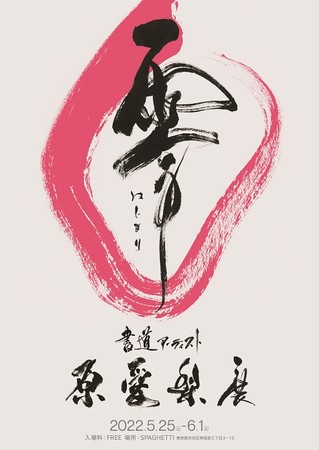 零
はじまり
書道アーティスト
原愛梨展
2022.5.25㊌-6.1㊌
入場料：FREE 場所：SPAGHETTI 東京都渋谷区神宮前